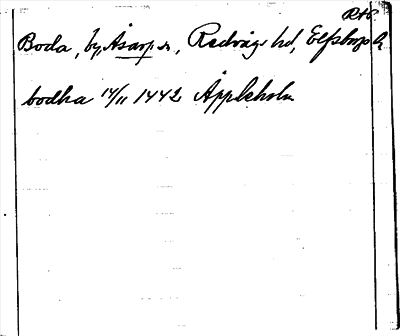 RAp.
Boda, by, Åsarp sn, Redvägs hd, Elfsborgs l.
bodha 14/11 1442 Äppleholm